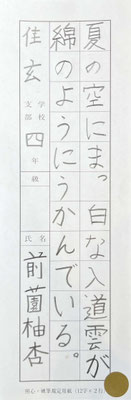 夏の空にまっ白な入道雲が
綿のようにうかんでいる。
学校
支部
佳玄
四年
級
氏名
前薗柚杏
硬筆規定用紙(12字×2行)